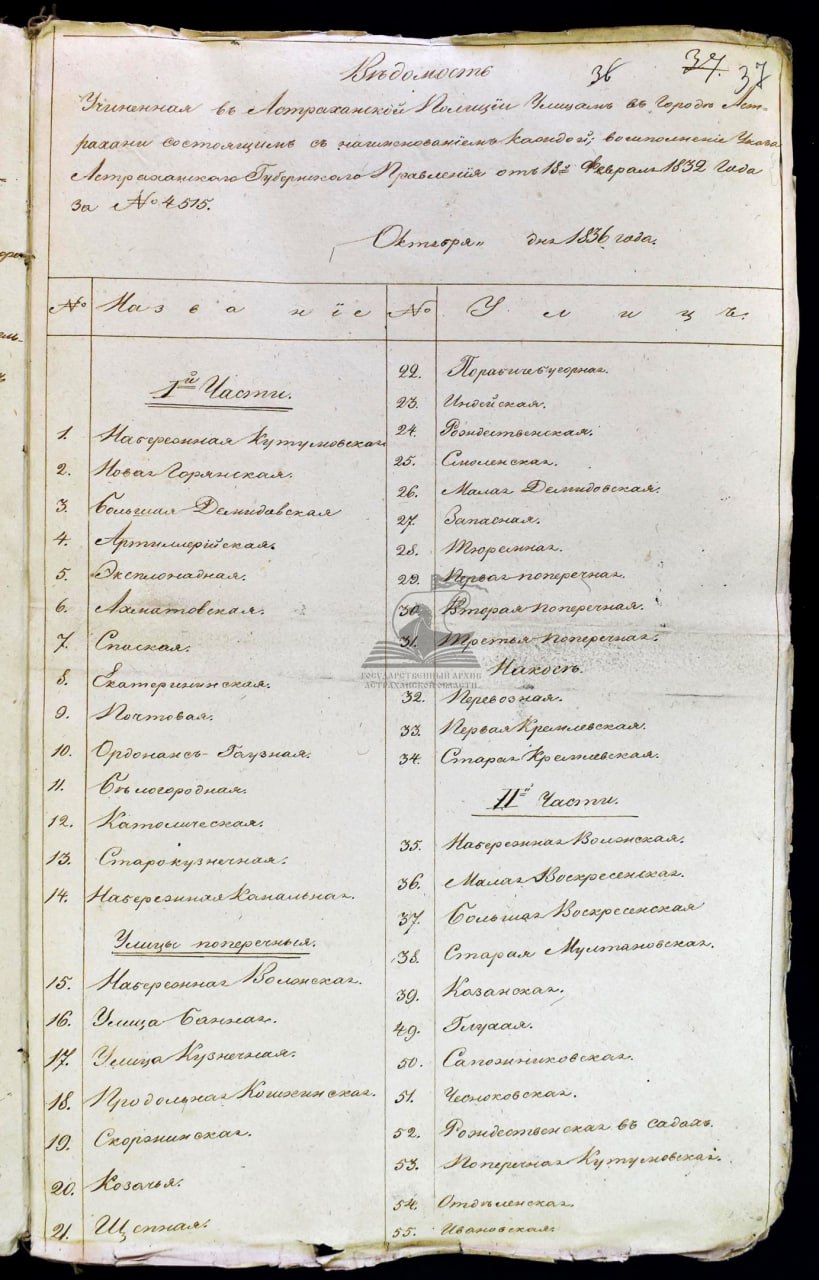 Вѣдомость
36 37. 37
Учиненная въ Астраханской Полиціи Улицамъ въ городѣ Аст-
рахани состоящимъ съ наименованіемъ каждой, во исполненіе Указа
Астраханскаго Губернскаго Правленія отъ 18го Февраля 1832 года
За № 4515.
Октября „ дня 1836 года.
№ Названіе № Улицъ.
1й Части.
1. Набережная Кутумовская
2. Новая Горянская.
3. Большая Демидовская
4. Артиллерійская.
5. Эксплонадная.
6. Ахматовская.
7. Спаская.
8. Екатерининская.
9. Почтовая.
10. Ордонансъ-Гаузная.
11. Бѣлогородная.
12. Католическая.
13. Старокузнечная.
14. Набережная Канальная.
Улицы поперечныя.
15. Набережная Волжская.
16. Улица Банная.
17. Улица Кузнечная.
18. Продольная Кошкинская.
19. Скоржинская.
20. Козачья.
21. Щепная.
22.
23. Индейская.
24. Рождественская.
25. Смоленская.
26. Малая Демидовская.
27. Запасная.
28. Тюремная.
29. Первая поперечная.
30. Вторая поперечная.
31. Третья поперечная.
Накость.
32. Перевозная.
33. Первая Кремлевская.
34. Старая Кремлевская.
IIй Части.
35. Набережная Волжская.
36. Малая Воскресенская.
37. Большая Воскресенская
38. Старая Мултановская.
39. Казанская.
49. Глухая.
50. Сапожниковская.
51. Чесноковская.
52. Рождественская въ садахъ.
53. Поперечная Кутумовская.
54. Отдѣленская.
55. Ивановская.
ГОСУДАРСТВЕННЫЙ АРХИВ
АСТРАХАНСКОЙ ОБЛАСТИ